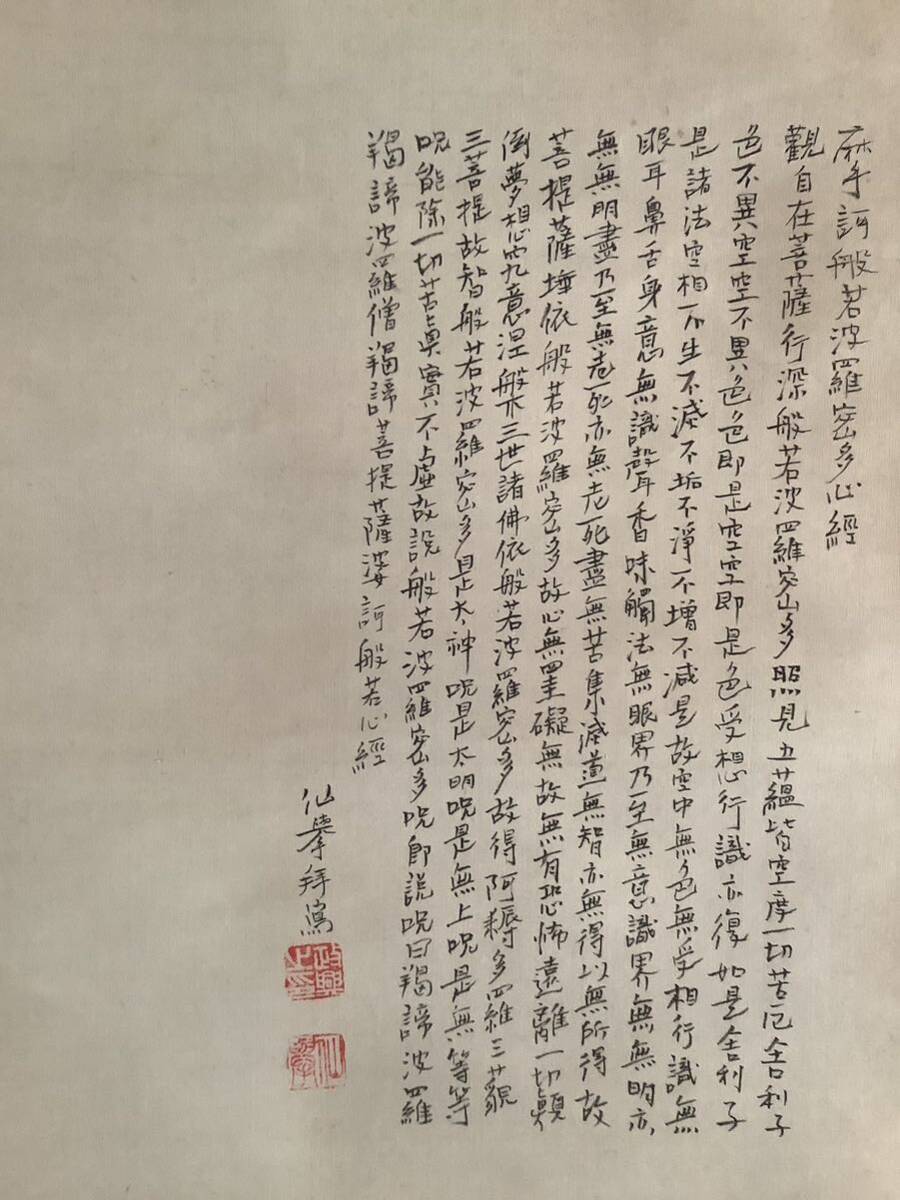 摩訶般若波羅密多心經
觀自在菩薩行深般若波羅密多照見五蘊皆空度一切苦厄舍利子
色不異空空不異色色即是空空即是色受想行識亦復如是舍利子
是諸法空相不生不滅不垢不淨不增不減是故空中無色無受相行識無
眼耳鼻舌身意無識聲香味觸法無眼界乃至無意識界無無明亦
無無明盡乃至無老死亦無老死盡無苦集滅道無智亦無得以無所得故
菩提薩埵依般若波羅密多故心無罣礙無故無有恐怖遠離一切顛
倒夢想究意涅般三世諸佛依般若波羅密多故得阿耨多羅三藐
三菩提故智般若波羅密多是大神呪是大明呪是無上呪是無等等
呪能除一切苦真實不虛故說般若波羅密多呪即說呪曰羯諦波羅
羯諦波羅僧羯諦菩提薩婆訶般若心經
仙舉拜寫
政興之印
仙舉